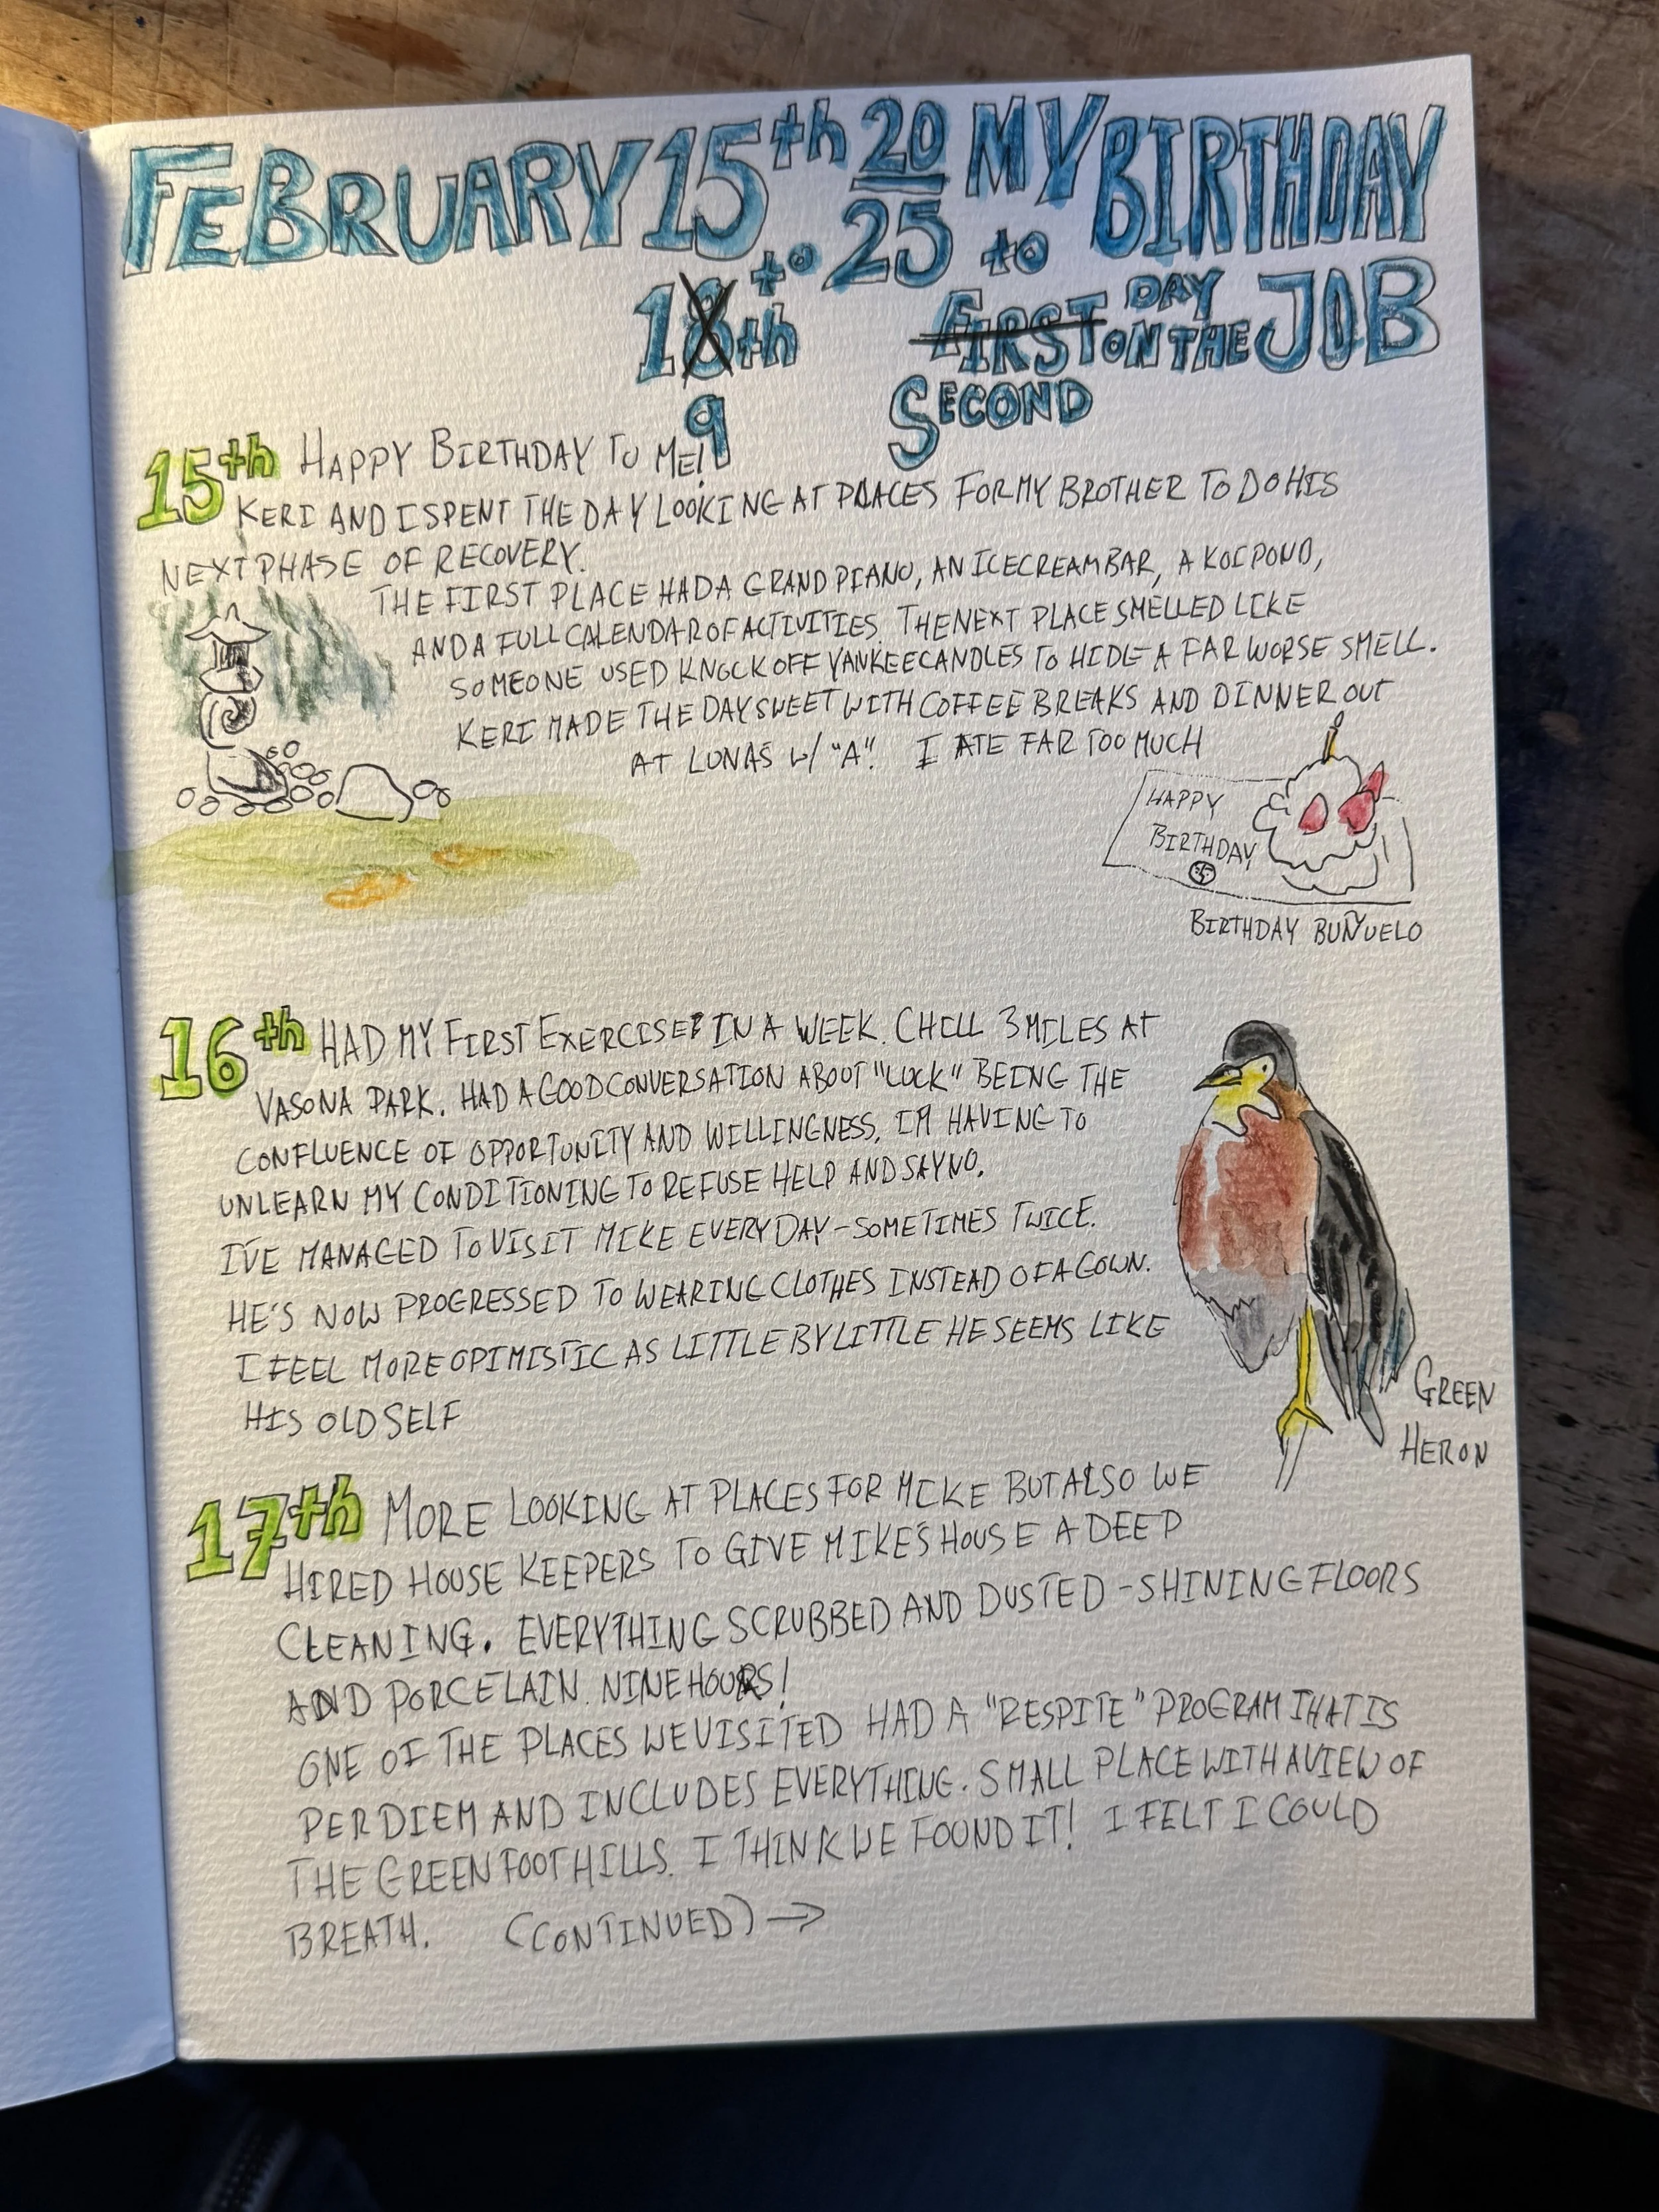 FEBRUARY 15th 20 MY BIRTHDAY
to 25 to
18th FIRST DAY ON THE JOB
9 SECOND
15th HAPPY BIRTHDAY TO ME!
KERI AND I SPENT THE DAY LOOKING AT PLACES FOR MY BROTHER TO DO HIS
NEXT PHASE OF RECOVERY.
THE FIRST PLACE HAD A GRAND PIANO, AN ICE CREAM BAR, A KOI POND,
AND A FULL CALENDAR OF ACTIVITIES. THE NEXT PLACE SMELLED LIKE
SOMEONE USED KNOCK OFF YANKEE CANDLES TO HIDE A FAR WORSE SMELL.
KERI MADE THE DAY SWEET WITH COFFEE BREAKS AND DINNER OUT
AT LUNAS W/ "A". I ATE FAR TOO MUCH
HAPPY
BIRTHDAY
BIRTHDAY BUÑUELO
16th HAD MY FIRST EXERCISE IN A WEEK. CHILL 3 MILES AT
VASONA PARK. HAD A GOOD CONVERSATION ABOUT "LUCK" BEING THE
CONFLUENCE OF OPPORTUNITY AND WILLINGNESS. I'M HAVING TO
UNLEARN MY CONDITIONING TO REFUSE HELP AND SAY NO.
I'VE MANAGED TO VISIT MIKE EVERY DAY - SOMETIMES TWICE.
HE'S NOW PROGRESSED TO WEARING CLOTHES INSTEAD OF A GOWN.
I FEEL MORE OPIMISTIC AS LITTLE BY LITTLE HE SEEMS LIKE
HIS OLD SELF
GREEN
HERON
17th MORE LOOKING AT PLACES FOR MIKE BUT ALSO WE
HIRED HOUSE KEEPERS TO GIVE MIKE'S HOUSE A DEEP
CLEANING. EVERYTHING SCRUBBED AND DUSTED - SHINING FLOORS
AND PORCELAIN. NINE HOURS!
ONE OF THE PLACES WE VISITED HAD A "RESPITE" PROGRAM THAT IS
PER DIEM AND INCLUDES EVERYTHING. SMALL PLACE WITH A VIEW OF
THE GREEN FOOTHILLS. I THINK WE FOUND IT! I FELT I COULD
BREATH. (CONTINUED) →